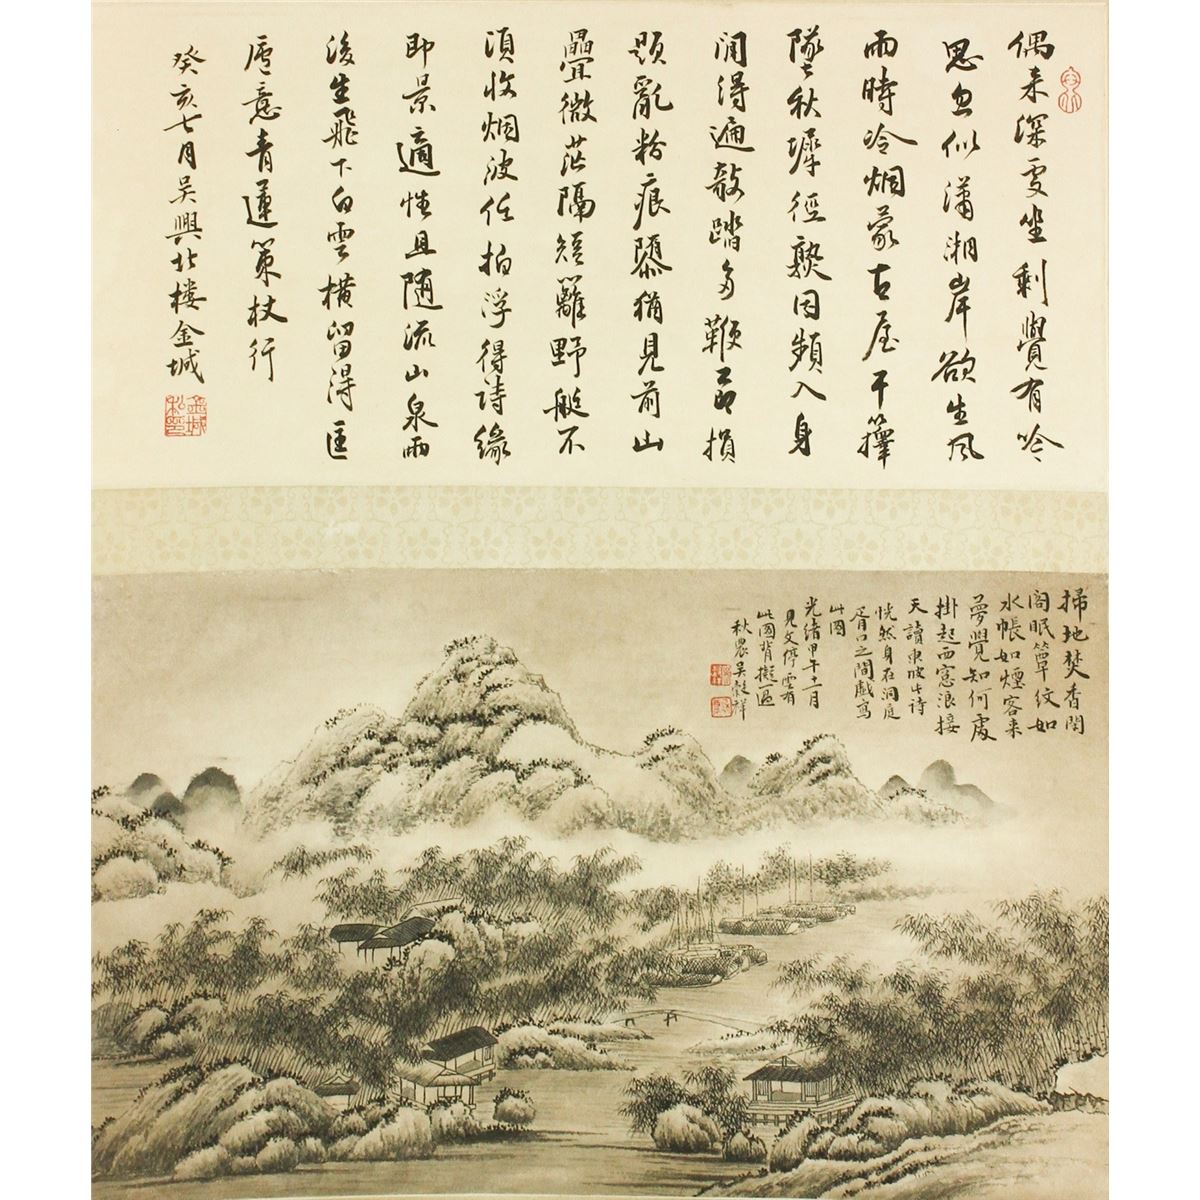 偶来深処坐剩覺有吟
思忽似瀟湘岸欲生風
雨時冷烟蒙古屋干籜
墜秋墀徑熟因頻入身
閒得遍敲踏多鞭節損
題亂粉痕隳猶見前山
疊微茫隔短籬野艇不
須收烟波任拍浮得詩緣
即景適性且隨流山泉雨
後生飛下白雲橫留得匡
廬意青蓮策杖行
癸亥七月吳興北樓金城
金城私印
掃地焚香閉
閣眠簟紋如
水帳如煙客来
夢覺知何處
掛起西窓浪接
天讀東坡此詩
恍然身在洞庭
胥口之間戲寫
此圖
光緒甲午十二月
見文停雲有
此圖背擬過
秋農吳穀祥